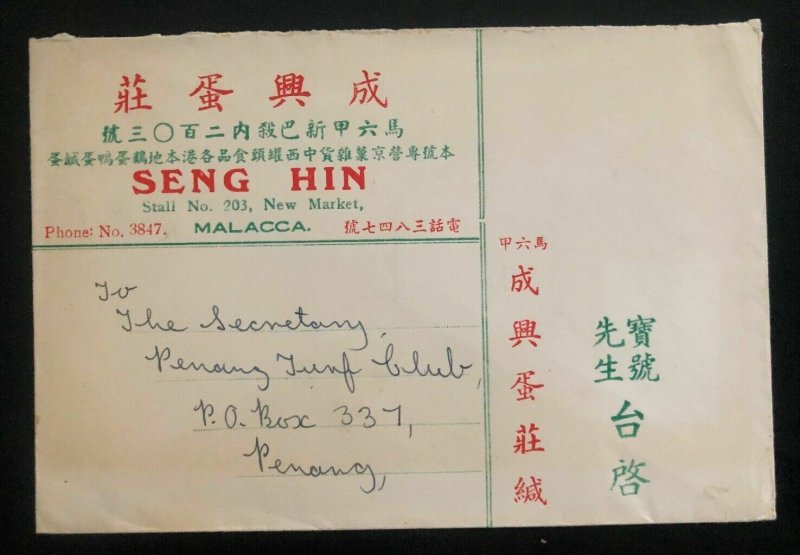 成興蛋莊
馬六甲新巴殺內二百〇三號
本號專營京菓雜貨中西罐頭食品各港本地鷄蛋鴨蛋鹹蛋
SENG HIN
Stall No. 203, New Market,
Phone: No. 3847. MALACCA. 電話三八四七號
To
The Secretary,
Penang Turf Club,
P.O. Box 337,
Penang,
馬六甲
成興蛋莊緘
寶號
先生
台啓